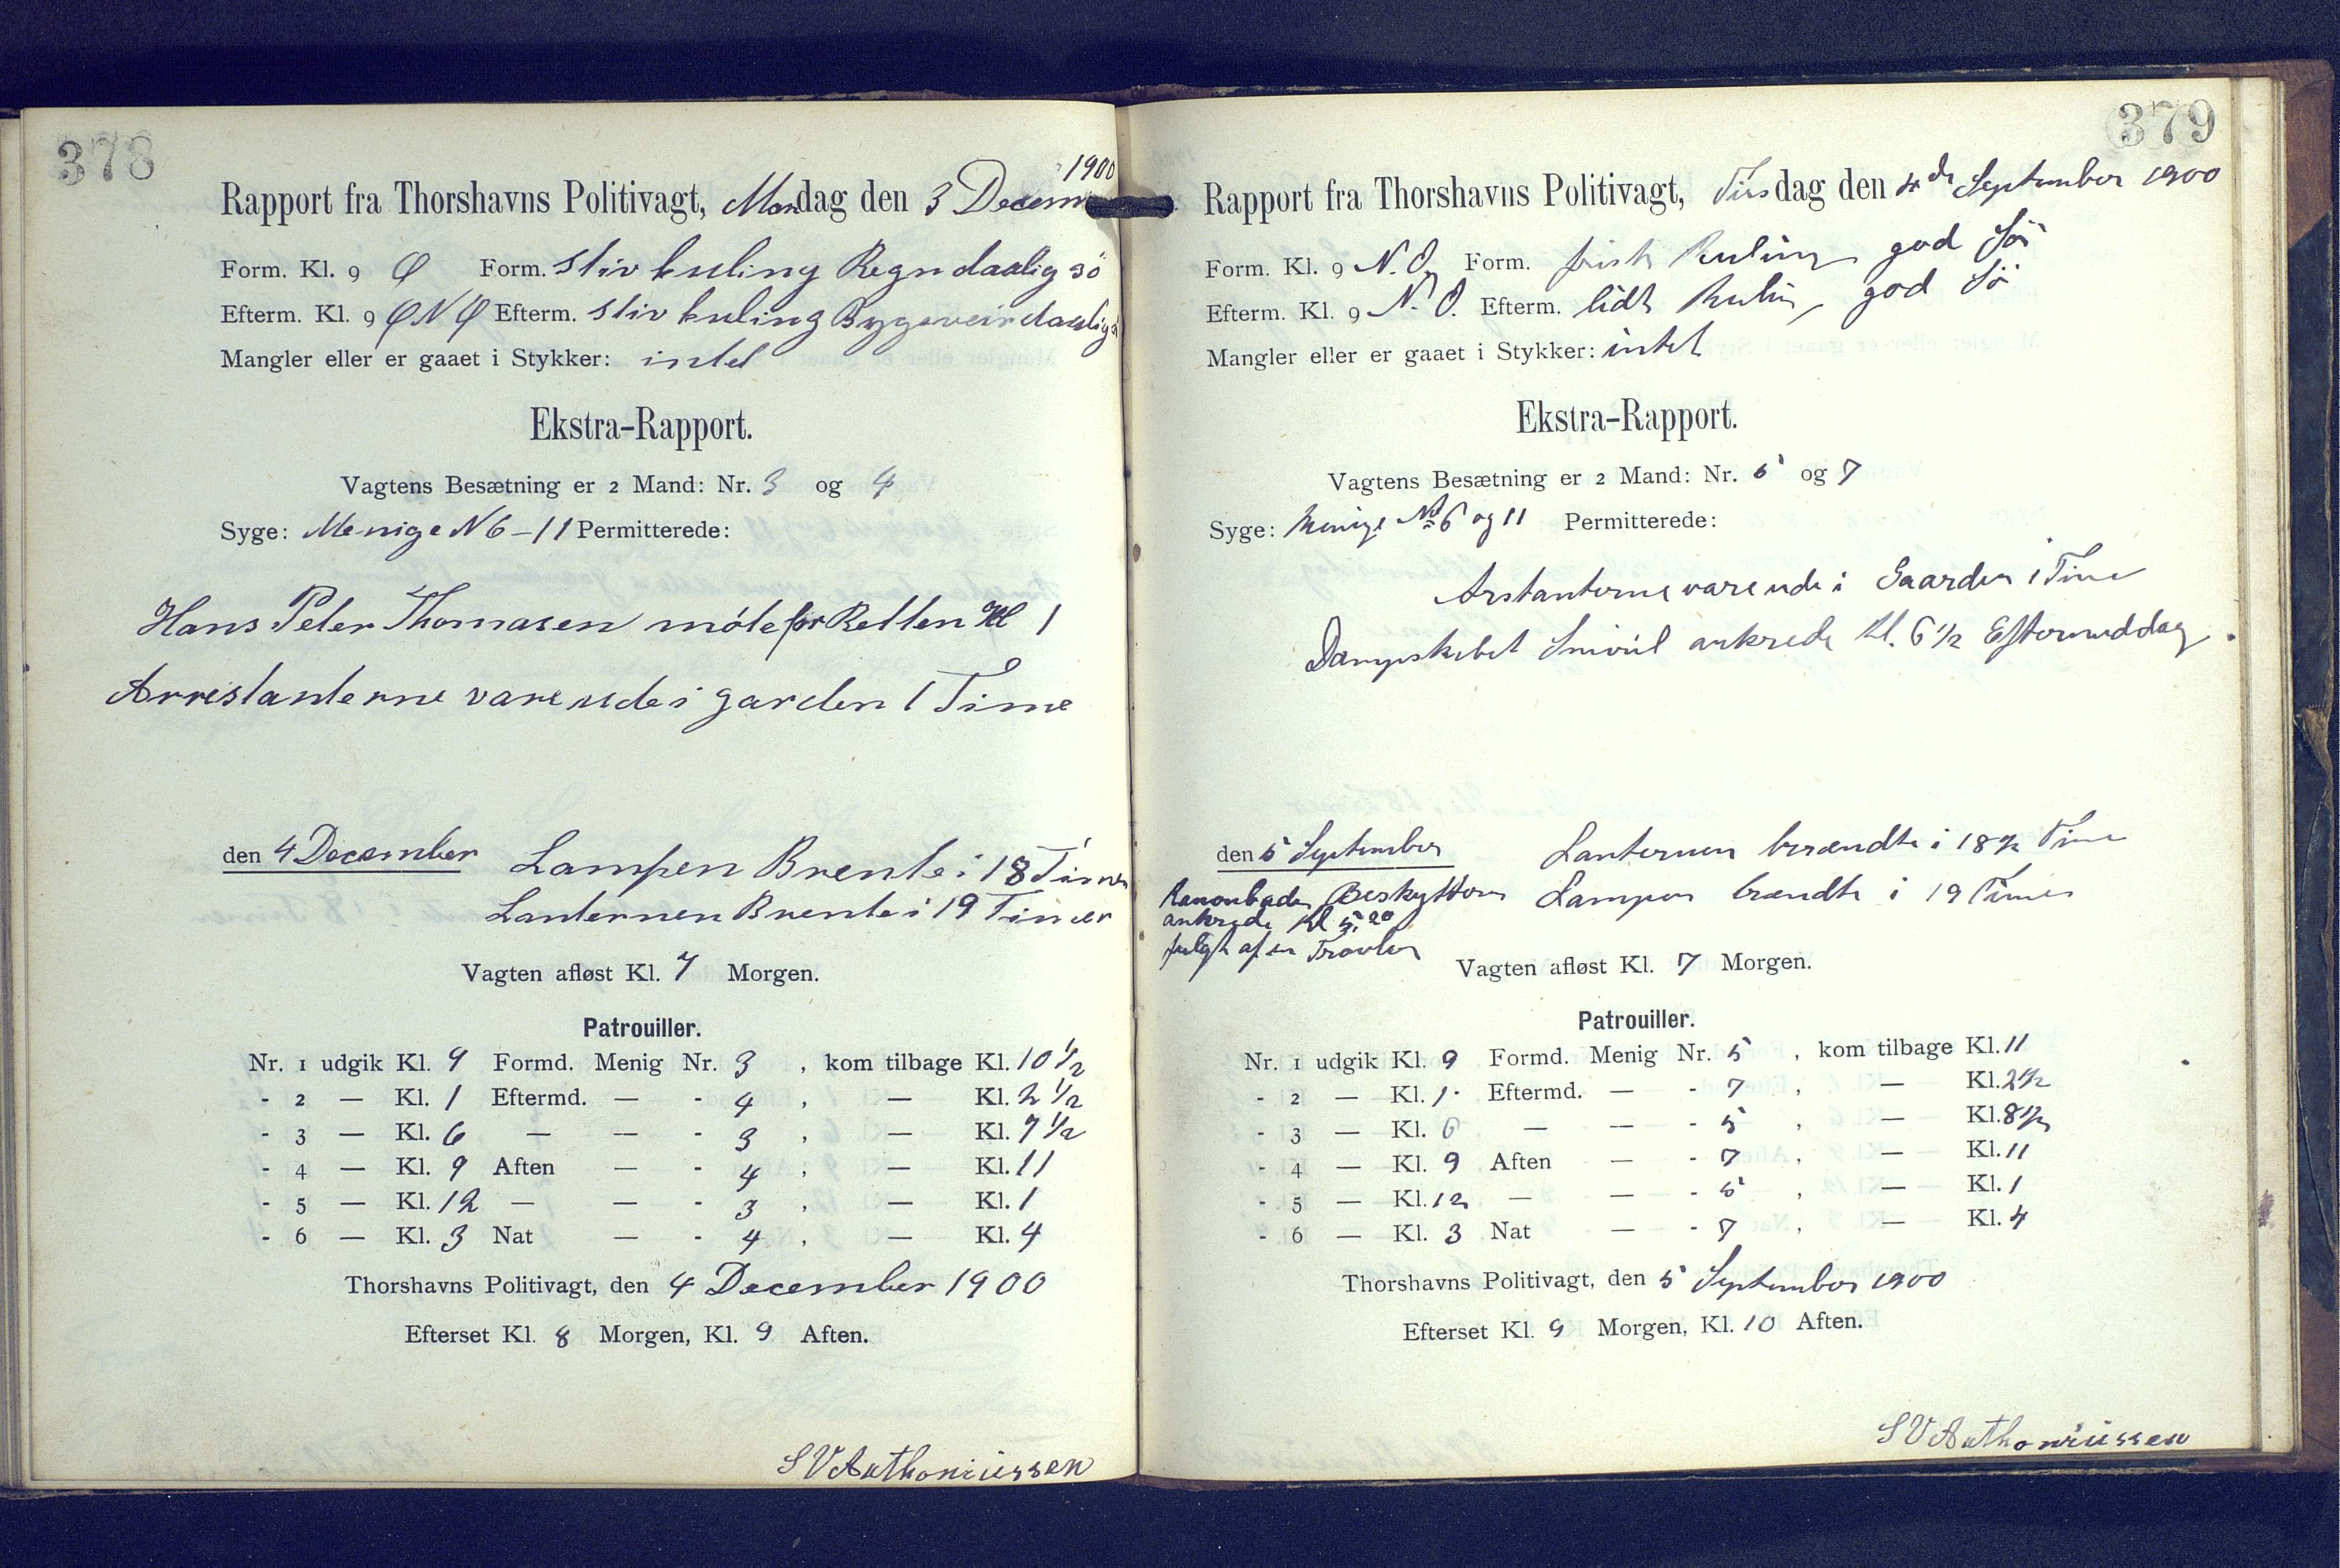 378
1900
Rapport fra Thorshavns Politivagt, Mandag den 3 Decem
Form. Kl. 9 Ø Form. stiv kuling Regn daalig sö
Efterm. Kl. 9 ØNØ Efterm. stiv kuling Bygeveir daalig
Mangler eller er gaaet i Stykker: intet
Ekstra-Rapport.
Vagtens Besætning er 2 Mand: Nr. 3 og 4
Syge: Menige N 6 - 11 Permitterede:
Hans Peter Thomasen møte for Retten Kl 1
Arrestanterne vare ude i garden 1 Time
den 4 December Lampen Brente i 18 Timer
Lanternen Brente i 19 Timer
Vagten afløst Kl. 7 Morgen.
Patrouiller.
Nr. 1 udgik Kl. 9 Formd. Menig Nr. 3 , kom tilbage Kl. 10 1/2
- 2 — Kl. 1 Eftermd. — - 4 , — Kl. 2 1/2
- 3 — Kl. 6 — — - 3 , — Kl. 7 1/2
- 4 — Kl. 9 Aften — - 4 , — Kl. 11
- 5 — Kl. 12 — — - 3 , — Kl. 1
- 6 — Kl. 3 Nat — - 4 , — Kl. 4
Thorshavns Politivagt, den 4 December 1900
Efterset Kl. 8 Morgen, Kl. 9 Aften.
S V Anthoniussen
379
Rapport fra Thorshavns Politivagt, Tirsdag den 4de September 1900
Form. Kl. 9 N. O. Form. frisk Kuling god Sö
Efterm. Kl. 9 N. O. Efterm. lidt Kuling, god Sö
Mangler eller er gaaet i Stykker: intet
Ekstra-Rapport.
Vagtens Besætning er 2 Mand: Nr. 5 og 7
Syge: Menige No 6 og 11 Permitterede:
Arstanterne vare ude i Gaarden 1 Time
Dampskibet Smiril ankrede Kl. 6 1/2 Eftermiddag.
den 5 September Lanternen brændte i 18 1/2 Time
Kanonbaden Beskytteren Lampen brændte i 19 Timer
ankrede Kl 5.20
fulgt af en Trawler
Vagten afløst Kl. 7 Morgen.
Patrouiller.
Nr. 1 udgik Kl. 9 Formd. Menig Nr. 5 , kom tilbage Kl. 11
- 2 — Kl. 1. Eftermd. — - 7 , — Kl. 2 1/2
- 3 — Kl. 6 — — - 5 , — Kl. 8 1/2
- 4 — Kl. 9 Aften — - 7 , — Kl. 11
- 5 — Kl. 12 — — - 5 , — Kl. 1
- 6 — Kl. 3 Nat — - 7 , — Kl. 4
Thorshavns Politivagt, den 5 September 1900
Efterset Kl. 9 Morgen, Kl. 10 Aften.
S V Anthoniussen